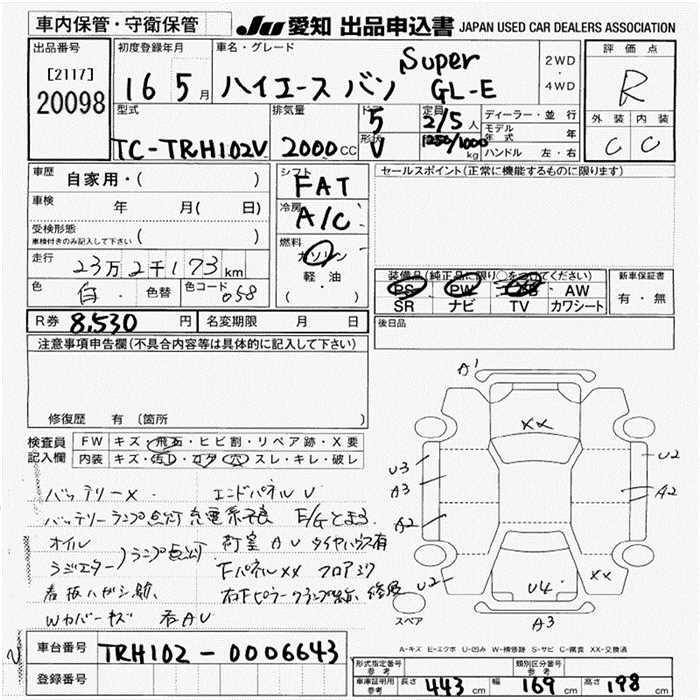 車内保管・守衛保管
JU 愛知 出品申込書 JAPAN USED CAR DEALERS ASSOCIATION
出品番号
[2117]
20098
初度登録年月
16 5月
車名・グレード
ハイエース バン Super GL-E
2WD
・
4WD
評価点
R
外装 内装
C C
型式
TC-TRH102V
排気量
2000cc
ドア
5
形状
V
定員
2/5人
1250/1000kg
ディーラー・並行
モデル年式 年
ハンドル 左・右
車歴
自家用・( )
車検
年 月( 日)
受検形態
車検付きのみ記入して下さい ( )
走行
23万2千173km
色
白 色替
色コード
058
シフト
FAT
冷房
A/C
燃料
ガソリン
・
軽油
( )
セールスポイント(正常に機能するものに限ります)
装備品(純正品に限り○をつけてください)
PS PW AW
SR ナビ TV カワシート
新車保証書
有・無
後日品
R券 8,530円
名変期限 月 日
注意事項申告欄(不具合内容等は具体的に記入して下さい)
修復歴 有〔箇所 〕
検査員記入欄
FW キズ・飛石・ヒビ割・リペア跡・X要
内装 キズ・汚レ・コゲ・穴・スレ・キレ・破レ
バッテリーX. エンドパネルU
バッテリーランプ点灯 充電系不良 E/Gとまる
オイル
ラジエター ランプ点灯 荷室AU タイヤハウス有
下パネルXX フロア
看板ハガシ跡、 右下ピラークランプ跡 修復
Wカバーキズ 各AU
A1
XX
U3
A3
A2
U2
U2
A2
XX
U4
A3
スペア
A-キズ E-エクボ U-凹み W-補修跡 S-サビ C-腐食 XX-交換済
車台番号
TRH102-0006643
登録番号
形式指定番号 参考
類別区分番号 参考
車庫証明用 参考 長さ 443cm 幅 169cm 高さ 198cm